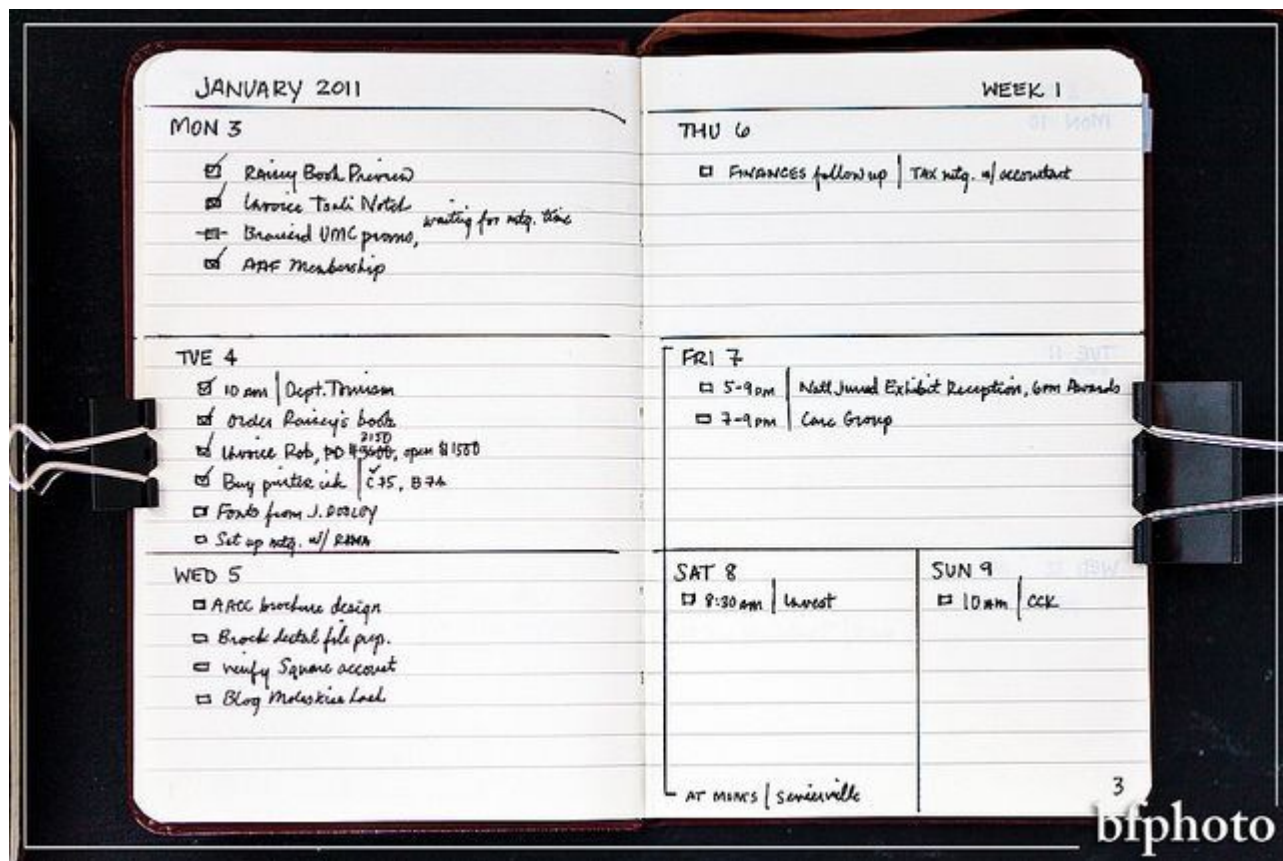 JANUARY 2011
MON 3
Rainey Book Preview
Invoice Tsali Notch
UMC promo, waiting for mtg. time
AAF Membership
TUE 4
10 am | Dept. Tourism
Order Rainey's book
2150
Invoice Rob, PD, open $1500
Buy printer ink | C75, B74
Fonts from J.
Set up mtg. w/
WED 5
AACC brochure design
Brock dental file prep.
verify Square account
Blog Moleskine hack
WEEK 1
THU 6
FINANCES follow up | TAX mtg. w/ accountant
FRI 7
5-9pm | Natl Juried Exhibit Reception, 6pm Awards
7-9pm | Care Group
SAT 8
8:30am | Invest
SUN 9
10am | CCK
AT MOM'S | Sevierville
3
bfphoto